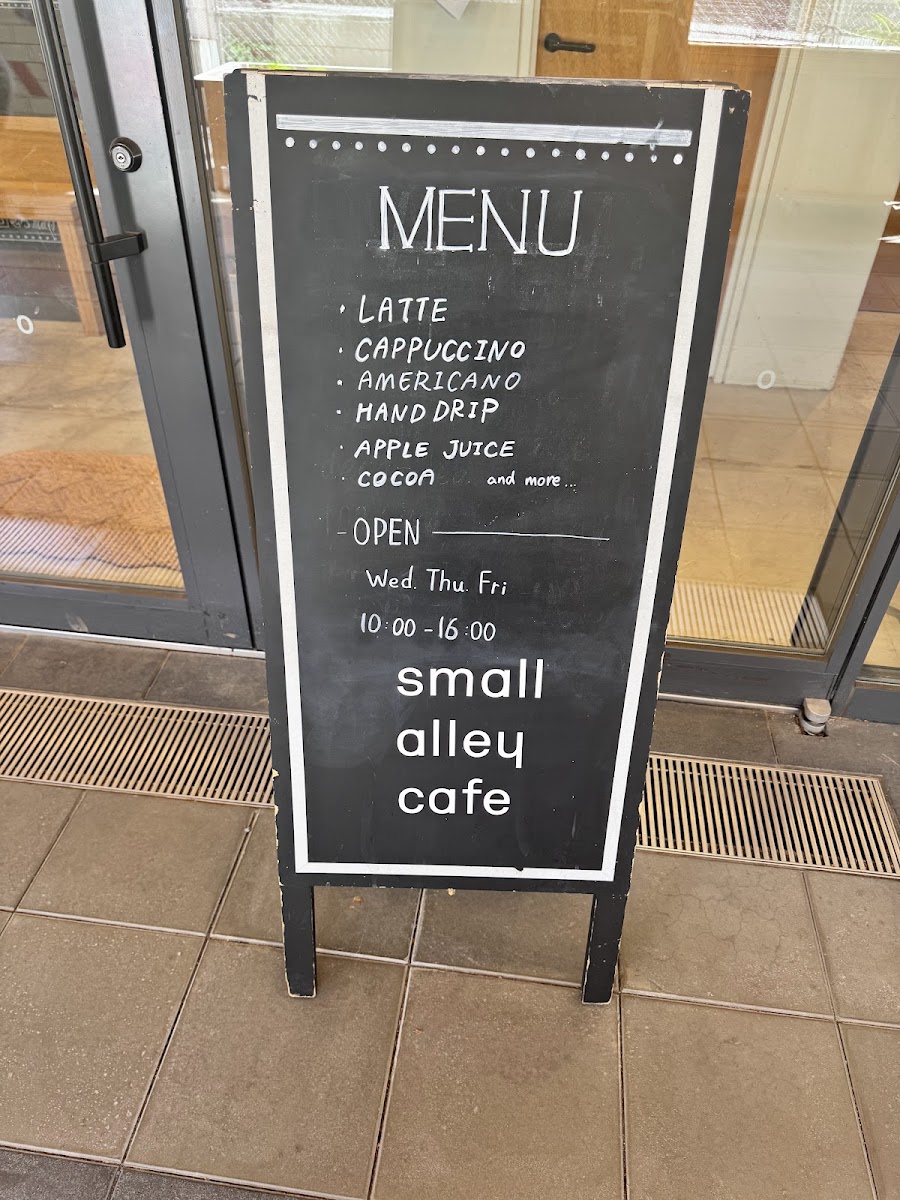 MENU
· LATTE
· CAPPUCCINO
· AMERICANO
· HAND DRIP
· APPLE JUICE
· COCOA and more...
- OPEN
Wed. Thu. Fri
10:00 - 16:00
small
alley
cafe